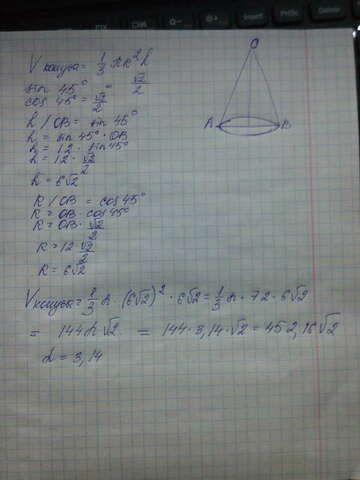 V конуса = 1/3 πR²h
sin 45° = √2/2
cos 45° = √2/2
h / OB = sin 45°
h = sin 45° · OB
h = 12 · sin 45°
h = 12 · √2/2
h = 6√2
R / OB = cos 45°
R = OB · cos 45°
R = OB · √2/2
R = 12 √2/2
R = 6√2
V конуса = 1/3 π · (6√2)² · 6√2 = 1/3 π · 72 · 6√2
= 144π√2 = 144 · 3,14 · √2 = 452,16√2
π = 3,14
O
A
B